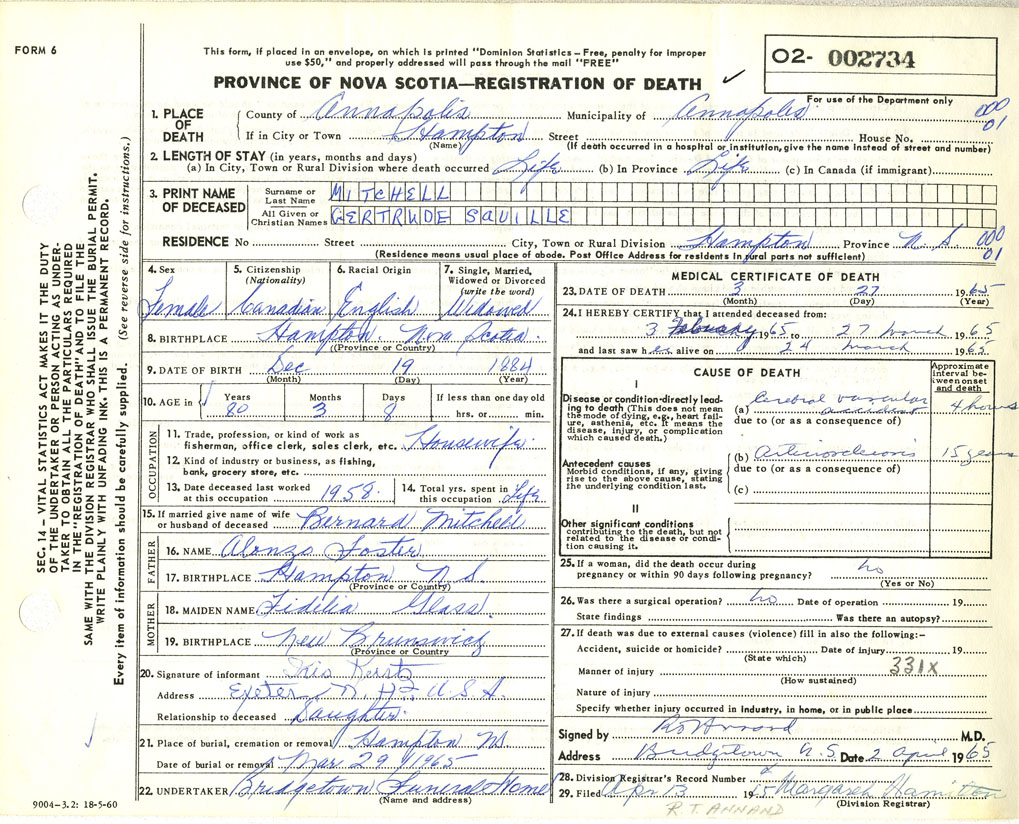 FORM 6
This form, if placed in an envelope, on which is printed "Dominion Statistics – Free, penalty for improper
use $50," and properly addressed will pass through the mail "FREE"
PROVINCE OF NOVA SCOTIA—REGISTRATION OF DEATH
02- 002734
For use of the Department only
1. PLACE OF DEATH
County of Annapolis Municipality of Annapolis 000
If in City or Town Hampton Street House No. 01
(Name) (If death occurred in a hospital or institution, give the name instead of street and number)
2. LENGTH OF STAY (in years, months and days)
(a) In City, Town or Rural Division where death occurred Life (b) In Province Life (c) In Canada (if immigrant)
3. PRINT NAME OF DECEASED
Surname or Last Name MITCHELL
All Given or Christian Names GERTRUDE SAVILLE
RESIDENCE No Street City, Town or Rural Division Hampton Province N.S. 000
(Residence means usual place of abode. Post Office Address for residents in rural parts not sufficient) 01
SEC. 14 – VITAL STATISTICS ACT MAKES IT THE DUTY
OF THE UNDERTAKER OR PERSON ACTING AS UNDER-
TAKER TO OBTAIN ALL THE PARTICULARS REQUIRED
IN THE "REGISTRATION OF DEATH" AND TO FILE THE
SAME WITH THE DIVISION REGISTRAR WHO SHALL ISSUE THE BURIAL PERMIT.
WRITE PLAINLY WITH UNFADING INK. THIS IS A PERMANENT RECORD.
Every item of information should be carefully supplied. (See reverse side for instructions.)
4. Sex Female
5. Citizenship (Nationality) Canadian
6. Racial Origin English
7. Single, Married, Widowed or Divorced (write the word) Widowed
8. BIRTHPLACE Hampton, Nova Scotia
(Province or Country)
9. DATE OF BIRTH Dec 19 1884
(Month) (Day) (Year)
10. AGE in Years Months Days If less than one day old
80 3 8 hrs. or min.
OCCUPATION
11. Trade, profession, or kind of work as
fisherman, office clerk, sales clerk, etc. Housewife
12. Kind of industry or business, as fishing,
bank, grocery store, etc.
13. Date deceased last worked at this occupation 1958
14. Total yrs. spent in this occupation Life
15. If married give name of wife
or husband of deceased Bernard Mitchell
FATHER
16. NAME Alonzo Foster
17. BIRTHPLACE Hampton N.S.
(Province or Country)
MOTHER
18. MAIDEN NAME Fidelia Glass
19. BIRTHPLACE New Brunswick
(Province or Country)
20. Signature of informant Iris
Address Exeter, N.H. U.S.A.
Relationship to deceased Daughter
21. Place of burial, cremation or removal Hampton NS.
Date of burial or removal Mar 29/1965
22. UNDERTAKER Bridgetown Funeral Home
(Name and address)
9004-3.2: 18-5-60
MEDICAL CERTIFICATE OF DEATH
23. DATE OF DEATH 3 27 1965
(Month) (Day) (Year)
24. I HEREBY CERTIFY that I attended deceased from:
3 February 1965 to 27 March 1965
and last saw her alive on 24 March 1965
CAUSE OF DEATH
Approximate interval between onset and death
I
Disease or condition directly lead-
ing to death (This does not mean
the mode of dying, e.g., heart fail-
ure, asthenia, etc. It means the
disease, injury, or complication
which caused death.)
(a) Cerebral vascular accident 4 hours
due to (or as a consequence of)
Antecedent causes
Morbid conditions, if any, giving
rise to the above cause, stating
the underlying condition last.
(b) 15 years
due to (or as a consequence of)
(c)
II
Other significant conditions
contributing to the death, but not
related to the disease or condi-
tion causing it.
25. If a woman, did the death occur during
pregnancy or within 90 days following pregnancy? no
(Yes or No)
26. Was there a surgical operation? no Date of operation 19
State findings Was there an autopsy?
27. If death was due to external causes (violence) fill in also the following:–
Accident, suicide or homicide? Date of injury 19
(State which)
Manner of injury 331X
(How sustained)
Nature of injury
Specify whether injury occurred in industry, in home, or in public place
Signed by M.D.
Address Bridgetown N.S. Date 2 April 1965
28. Division Registrar's Record Number
29. Filed Apr 13 Margaret Hamilton
(Division Registrar)
R. T. ANNAND